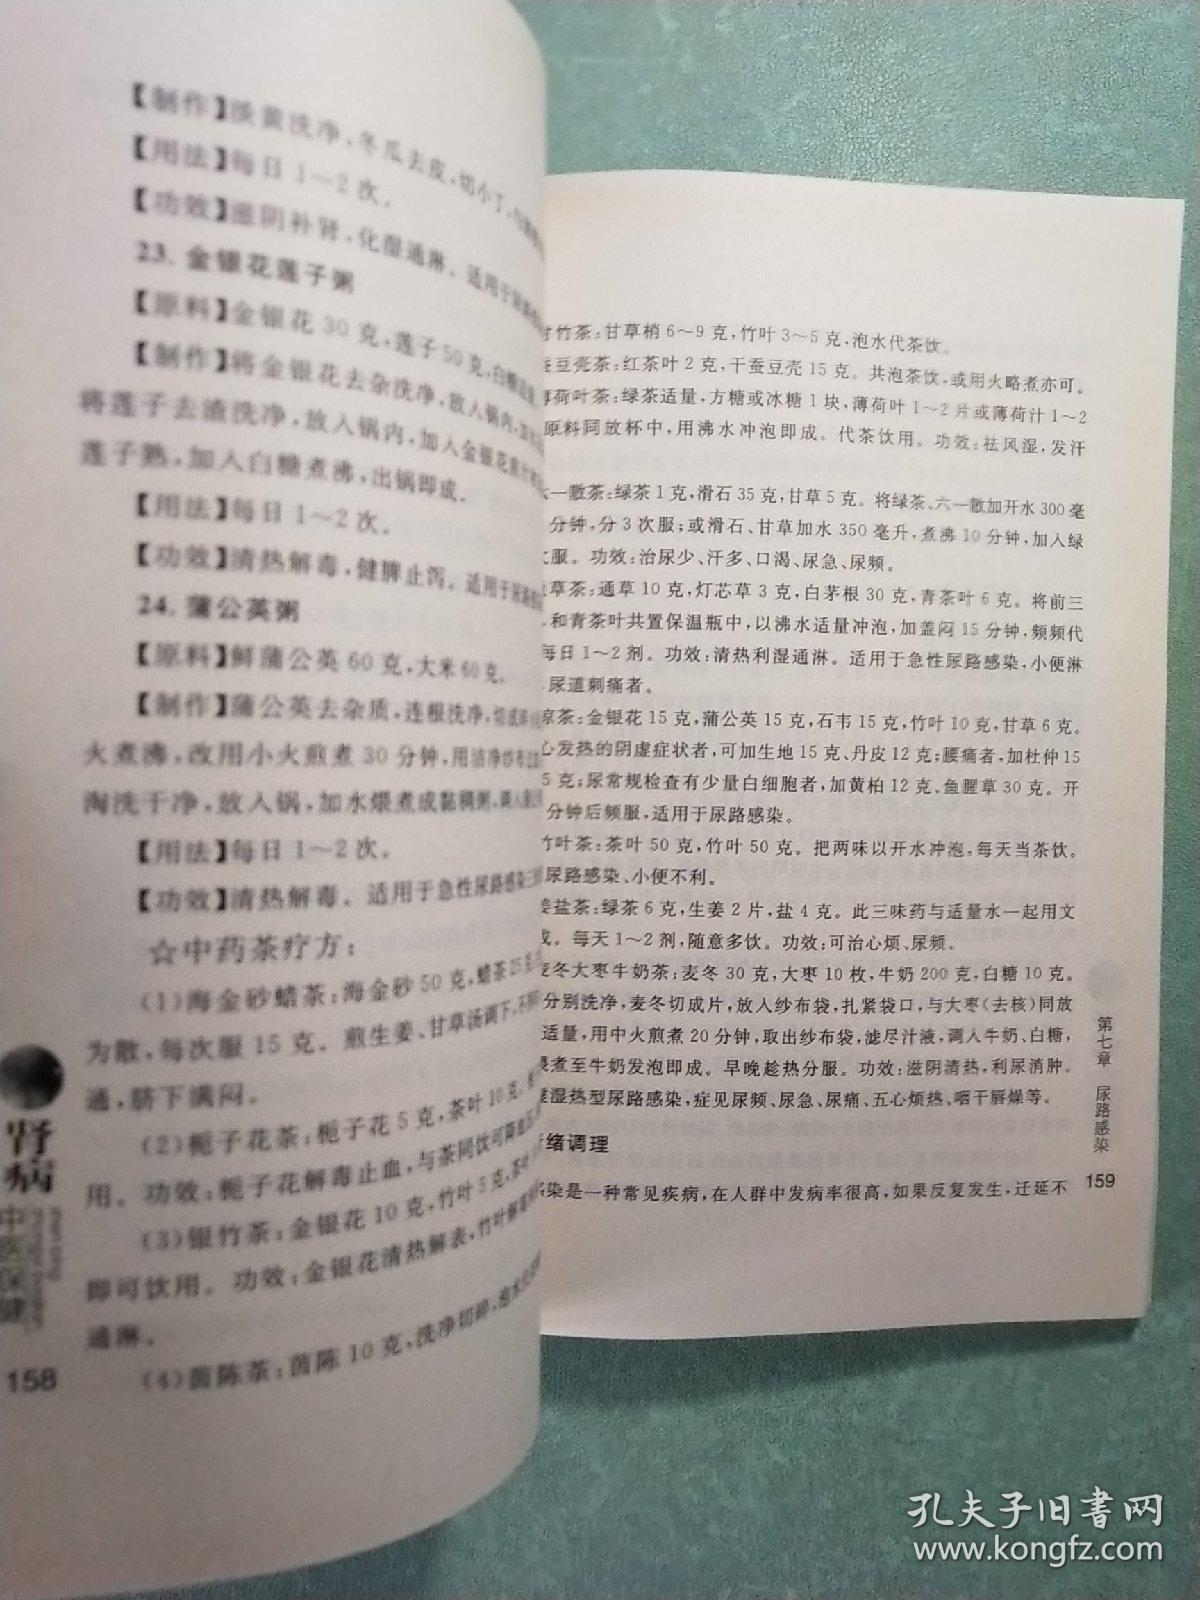 【制作】
黄洗净,冬瓜去皮,切小丁,
【用法】每日1～2次。
【功效】滋阴补肾,化湿通淋。适用于
23. 金银花莲子粥
【原料】金银花30克,莲子50克,白糖
【制作】将金银花去杂洗净,放入锅内,
将莲子去渣洗净,放入锅内,加入金银花
莲子熟,加入白糖煮沸,出锅即成。
【用法】每日1～2次。
【功效】清热解毒,健脾止泻。适用于
24. 蒲公英粥
【原料】鲜蒲公英60克,大米60克。
【制作】蒲公英去杂质,连根洗净,切
火煮沸,改用小火煎煮30分钟,用洁净纱布
淘洗干净,放入锅,加水煨煮成黏稠粥,调入
【用法】每日1～2次。
【功效】清热解毒。适用于急性尿路感染
☆中药茶疗方:
(1)海金砂蜡茶:海金砂50克,蜡茶25克,
为散,每次服15克。煎生姜、甘草汤调下,
通,脐下满闷。
(2)栀子花茶:栀子花5克,茶叶10克,
用。功效:栀子花解毒止血,与茶同饮可降血压
(3)银竹茶:金银花10克,竹叶5克,茶叶
即可饮用。功效:金银花清热解表,竹叶
通淋。
(4)茵陈茶:茵陈10克,洗净切碎,
肾病
中医保健
158
竹茶:甘草梢6～9克,竹叶3～5克,泡水代茶饮。
豆壳茶:红茶叶2克,干蚕豆壳15克。共泡茶饮,或用火略煮亦可。
荷叶茶:绿茶适量,方糖或冰糖1块,薄荷叶1～2片或薄荷汁1～2
原料同放杯中,用沸水冲泡即成。代茶饮用。功效:祛风湿,发汗
一散茶:绿茶1克,滑石35克,甘草5克。将绿茶、六一散加开水300毫
分钟,分3次服;或滑石、甘草加水350毫升,煮沸10分钟,加入绿
服。功效:治尿少、汗多、口渴、尿急、尿频。
草茶:通草10克,灯芯草3克,白茅根30克,青茶叶6克。将前三
和青茶叶共置保温瓶中,以沸水适量冲泡,加盖闷15分钟,频频代
每日1～2剂。功效:清热利湿通淋。适用于急性尿路感染,小便淋
尿道刺痛者。
凉茶:金银花15克,蒲公英15克,石韦15克,竹叶10克,甘草6克。
心发热的阴虚症状者,可加生地15克、丹皮12克;腰痛者,加杜仲15
5克;尿常规检查有少量白细胞者,加黄柏12克、鱼腥草30克。开
分钟后频服,适用于尿路感染。
竹叶茶:茶叶50克,竹叶50克。把两味以开水冲泡,每天当茶饮。
尿路感染、小便不利。
姜盐茶:绿茶6克,生姜2片,盐4克。此三味药与适量水一起用文
成。每天1～2剂,随意多饮。功效:可治心烦、尿频。
麦冬大枣牛奶茶:麦冬30克,大枣10枚,牛奶200克,白糖10克。
分别洗净,麦冬切成片,放入纱布袋,扎紧袋口,与大枣(去核)同放
适量,用中火煎煮20分钟,取出纱布袋,滤尽汁液,调入牛奶、白糖,
煮至牛奶发泡即成。早晚趁热分服。功效:滋阴清热,利尿消肿。
湿热型尿路感染,症见尿频、尿急、尿痛、五心烦热、咽干唇燥等。
绪调理
感染是一种常见疾病,在人群中发病率很高,如果反复发生,迁延不
第七章 尿路感染
159
孔夫子旧书网
www.kongfz.com